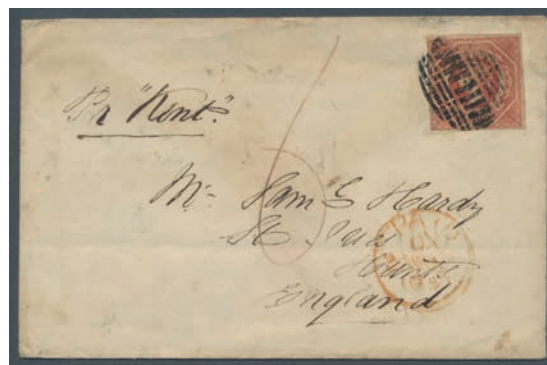 Pr "Kent".
Mr Sam G Hardy
St Ives
Hunts
England
PAID